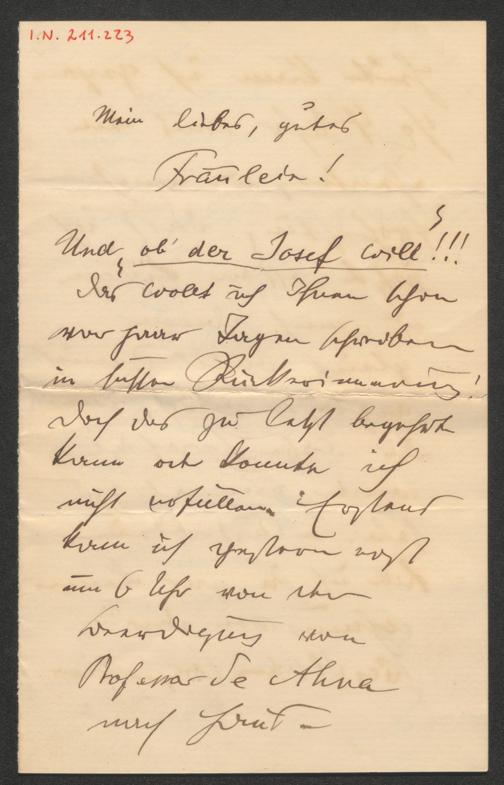 I.N. 211.223
Mein liebes, gutes
Fräulein!
Und „ob der Josef will“!!!
das wollt ich Ihnen schon
vor paar Tagen schreiben
in süßer Rückerinnerung!
doch das zu letzt begehrte
kann oder konnte ich
nicht erfüllen. Erstens
kam ich gestern erst
um 6 Uhr von der
Beerdigung von
Professor De Ahna
nach Haus –